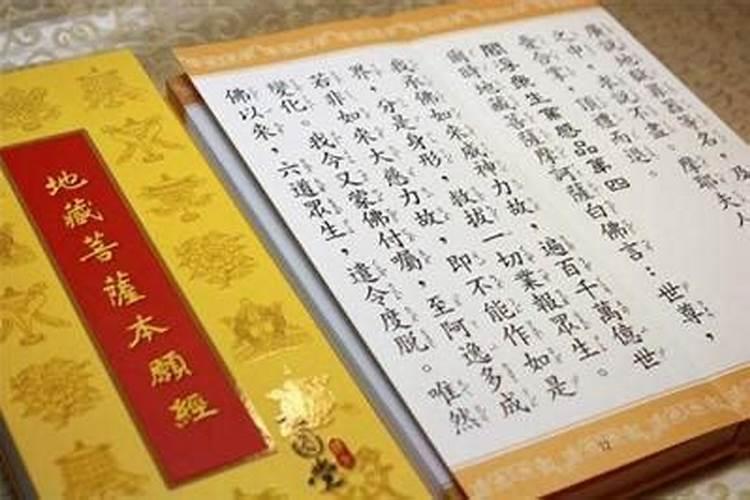 地藏菩薩本願經
廣說地獄罪報等名，及
之中，求說不盡。摩耶夫人
憂合掌，頂禮而退。
閻浮眾生業感品第四
爾時地藏菩薩摩訶薩白佛言：世尊，
我承佛如來威神力故，遍百千萬億世
界，分是身形，救拔一切業報眾生。
若非如來大慈力故，即不能作如是
變化。我今又蒙佛付囑，至阿逸多成
佛以來，六道眾生，遣令度脫。唯然